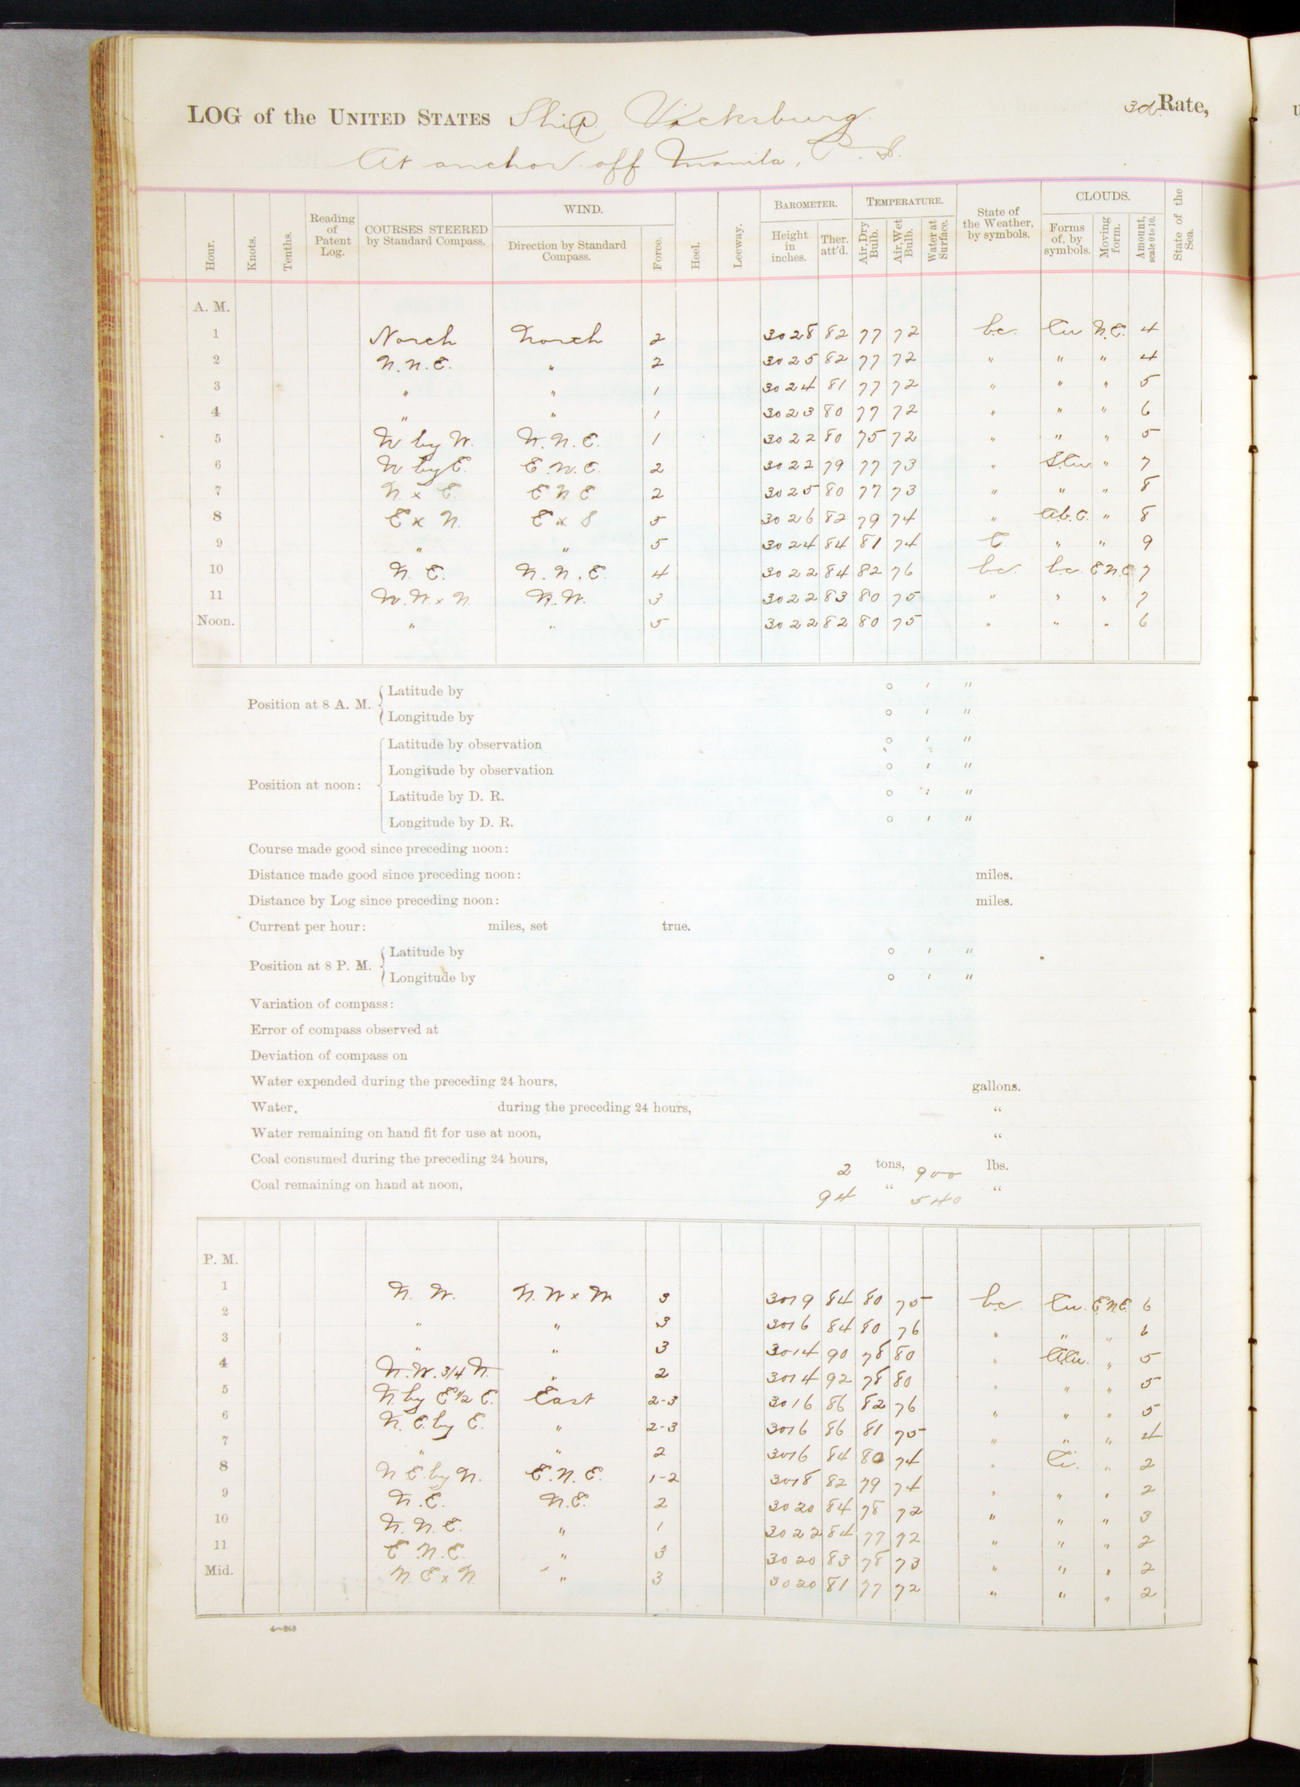 LOG of the UNITED STATES Ship Vicksburg. 3d Rate,
At anchor off Manila, P. I.
Hour. Knots. Tenths. Reading of Patent Log. COURSES STEERED by Standard Compass. WIND. Direction by Standard Compass. Force. Heel. Leeway. BAROMETER. Height in inches. Ther. att'd. TEMPERATURE. Air, Dry Bulb. Air, Wet Bulb. Water at Surface. State of the Weather, by symbols. CLOUDS. Forms of, by symbols. Moving form. Amount, scale 0 to 10. State of the Sea.
A. M.
1 North North 2 30 28 82 77 72 bc. Cu N.E. 4
2 N.N.E. " 2 30 25 82 77 72 " " " 4
3 " " 1 30 24 81 77 72 " " " 5
4 " " 1 30 23 80 77 72 " " " 6
5 N by W. N.N.E. 1 30 22 80 75 72 " " " 5
6 N by E. E.N.E. 2 30 22 79 77 73 " S.Cu " 7
7 N x E E N E 2 30 25 80 77 73 " " " 8
8 E x N. E x S 5 30 26 82 79 74 " " 8
9 " " 5 30 24 84 81 74 C " " 9
10 N. E. N.N.E. 4 30 22 84 82 76 bc. bc E N.E 7
11 W.N x N N.W. 3 30 22 83 80 75 " " " 7
Noon. " " 5 30 22 82 80 75 " " " 6
Position at 8 A. M. { Latitude by ° ′ ″
Longitude by ° ′ ″
Position at noon: { Latitude by observation ° ′ ″
Longitude by observation ° ′ ″
Latitude by D. R. ° ′ ″
Longitude by D. R. ° ′ ″
Course made good since preceding noon:
Distance made good since preceding noon: miles.
Distance by Log since preceding noon: miles.
Current per hour: miles, set true.
Position at 8 P. M. { Latitude by ° ′ ″
Longitude by ° ′ ″
Variation of compass:
Error of compass observed at
Deviation of compass on
Water expended during the preceding 24 hours, gallons.
Water, during the preceding 24 hours, "
Water remaining on hand fit for use at noon, "
Coal consumed during the preceding 24 hours, 2 tons, 900 lbs.
Coal remaining on hand at noon, 94 " 540 "
P. M.
1 N. W. N.W x W 3 3019 84 80 75 bc. Cu. E.N.E 6
2 " " 3 3016 84 80 76 " " " 6
3 " " 3 3014 90 78 80 " " 5
4 N.W. 3/4 N. " 2 3014 92 78 80 " " " 5
5 N by E 1/2 E. East 2-3 3016 86 82 76 " " " 5
6 N.E. by E. " 2-3 3016 86 81 75 " " " 4
7 " " 2 3016 84 80 74 " Ci. " 2
8 N E. by N. E.N.E. 1-2 3018 82 79 74 " " " 2
9 N.E. N.E. 2 3020 84 78 72 " " " 3
10 N.N.E. " 1 3022 84 77 72 " " " 2
11 E N.E. " 3 3020 83 78 73 " " " 2
Mid. N.E x N " 3 3020 81 77 72 " " " 2